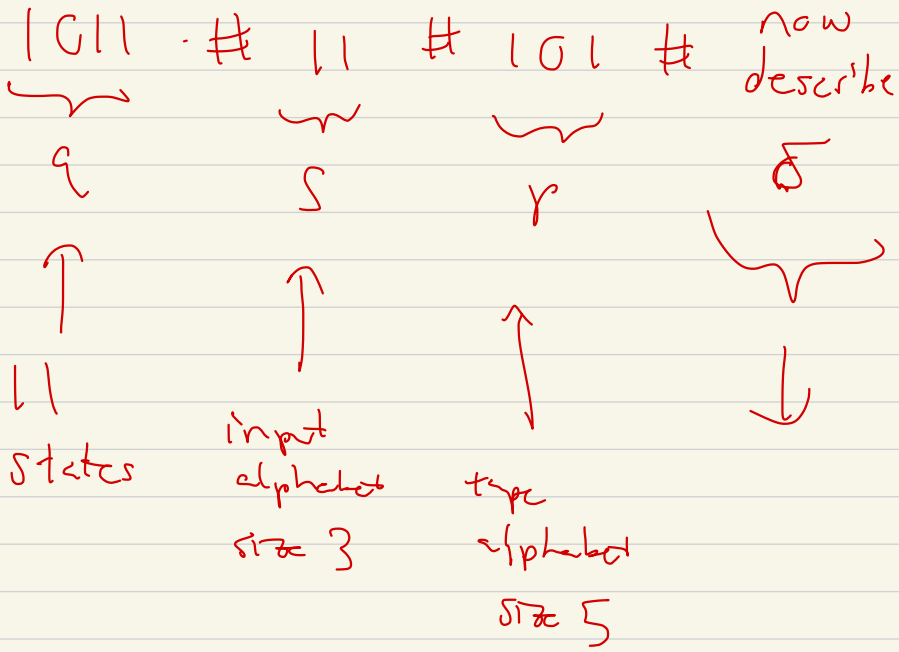 1011 # 11 # 101 # now describe
q s r δ
11 states
input alphabet size 3
tape alphabet size 5